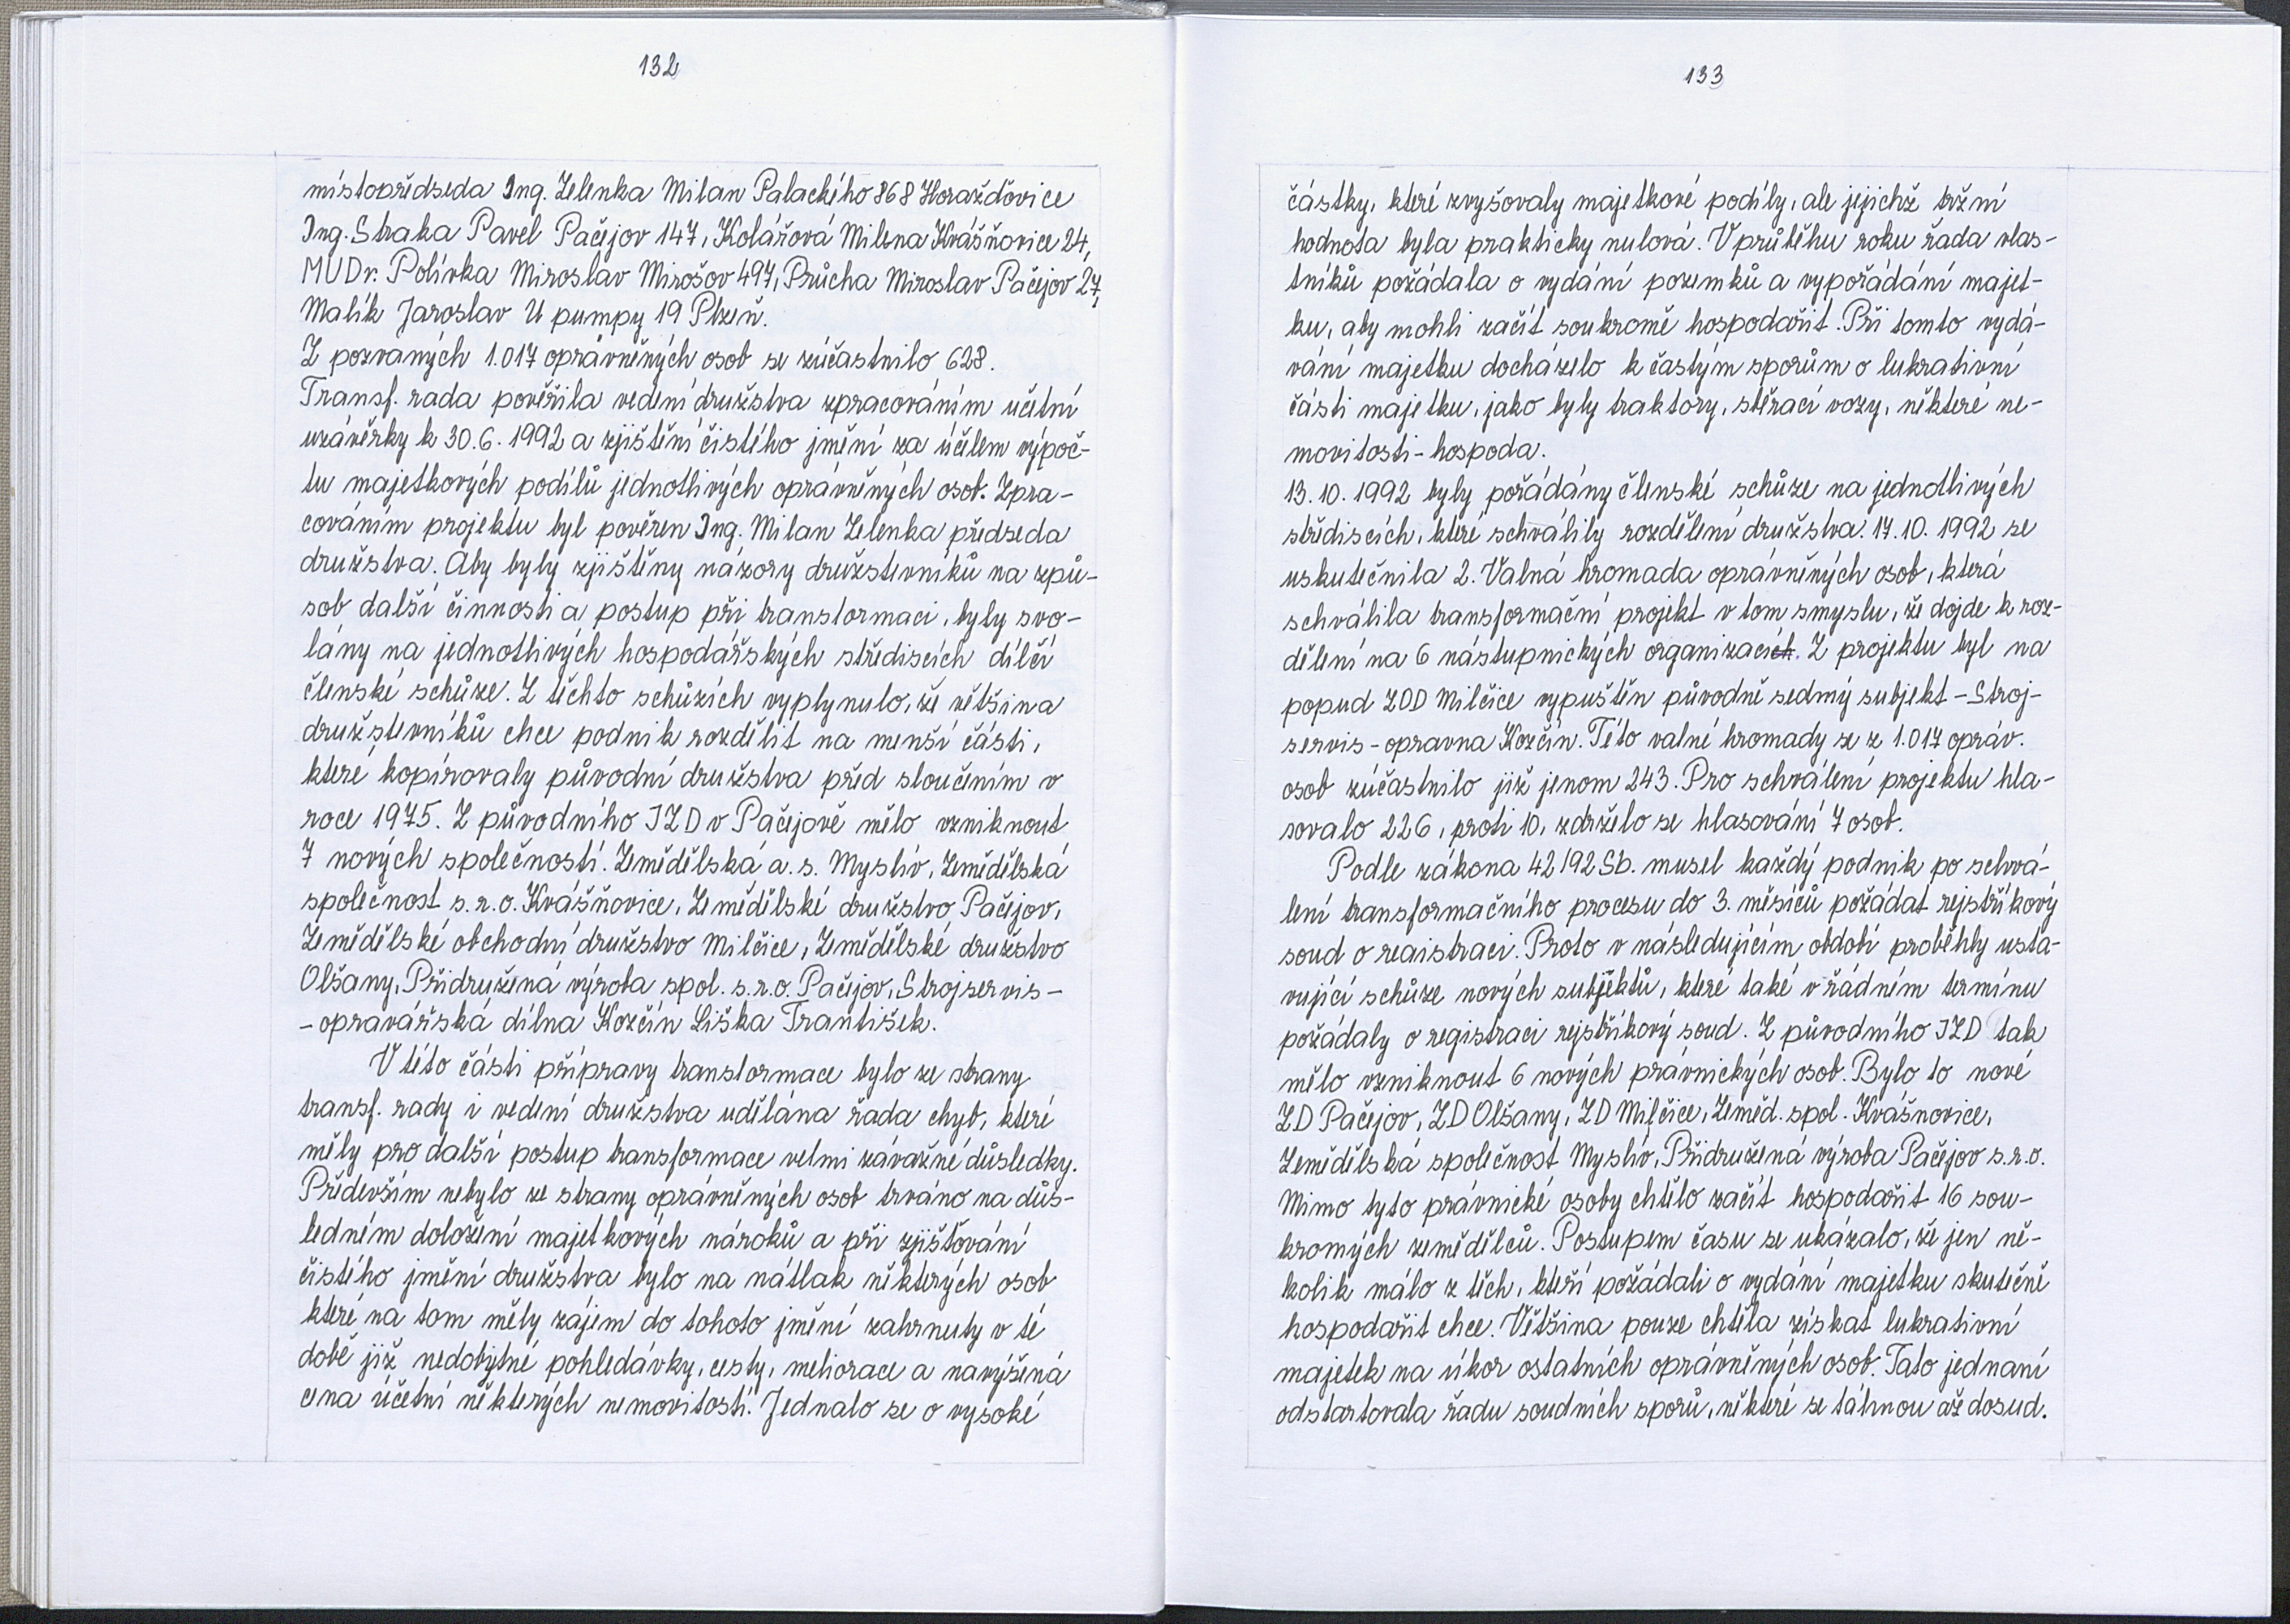 132
místopředseda Ing. Zelenka Milan Palackého 868 Horažďovice
Ing. Straka Pavel Pačejov 147, Kolářová Milena Kvášňovice 24,
MUDr. Polívka Miroslav Mirošov 497, Průcha Miroslav Pačejov 27,
Malík Jaroslav U pumpy 19 Plzeň.
Z pozvaných 1.017 oprávněných osob se zúčastnilo 628.
Transf. rada pověřila vedení družstva zpracováním účetní
uzávěrky k 30.6.1992 a zjištění čistého jmění za účelem výpoč-
tu majetkových podílů jednotlivých oprávněných osob. Zpra-
cováním projektu byl pověřen Ing. Milan Zelenka předseda
družstva. Aby byly zjištěny názory družstevníků na způ-
sob další činnosti a postup při transformaci, byly svo-
lány na jednotlivých hospodářských střediscích dílčí
členské schůze. Z těchto schůzích vyplynulo, že většina
družstevníků chce podnik rozdělit na menší části,
které kopírovaly původní družstva před sloučením v
roce 1975. Z původního JZD v Pačejově mělo vzniknout
7 nových společností. Zemědělská a.s. Myslív, Zemědělská
společnost s.r.o. Kvášňovice, Zemědělské družstvo Pačejov,
Zemědělské obchodní družstvo Milčice, Zemědělské družstvo
Olšany, Přidružená výroba spol. s.r.o. Pačejov, Strojservis-
-opravářská dílna Kozčín Liška František.
V této části přípravy transformace bylo ze strany
transf. rady i vedení družstva udělána řada chyb, které
měly pro další postup transformace velmi závažné důsledky.
Především nebylo ze strany oprávněných osob trváno na důs-
ledném doložení majetkových nároků a při zjišťování
čistého jmění družstva bylo na nátlak některých osob
které na tom měly zájem do tohoto jmění zahrnuty v té
době již nedobytné pohledávky, cesty, meliorace a navýšená
cena účetní některých nemovitostí. Jednalo se o vysoké
133
částky, které zvyšovaly majetkové podíly, ale jejichž tržní
hodnota byla prakticky nulová. V průběhu roku řada vlas-
tníků požádala o vydání pozemků a vypořádání majet-
ku, aby mohli začít soukromě hospodařit. Při tomto vydá-
vání majetku docházelo k častým sporům o lukrativní
části majetku, jako byly traktory, stěrací vozy, některé ne-
movitosti - hospoda.
13.10.1992 byly pořádány členské schůze na jednotlivých
střediscích, které schválily rozdělení družstva. 17.10.1992 se
uskutečnila 2. Valná hromada oprávněných osob, která
schválila transformační projekt v tom smyslu, že dojde k roz-
dělení na 6 nástupnických organizacích. Z projektu byl na
popud ZOD Milčice vypuštěn původně sedmý subjekt - Stroj-
servis - opravna Kozčín. Této valné hromady se z 1.017 opráv.
osob zúčastnilo již jenom 243. Pro schválení projektu hla-
sovalo 226, proti 10, zdrželo se hlasování 7 osob.
Podle zákona 42/92 Sb. musel každý podnik po schvá-
lení transformačního procesu do 3. měsíců požádat rejstříkový
soud o registraci. Proto v následujícím období proběhly usta-
vující schůze nových subjektů, které také v řádném termínu
požádaly o registraci rejstříkový soud. Z původního JZD tak
mělo vzniknout 6 nových právnických osob. Bylo to nové
ZD Pačejov, ZD Olšany, ZD Milčice, Zeměd. spol. Kvášnovice,
Zemědělská společnost Myslív, Přidružená výroba Pačejov s.r.o.
Mimo tyto právnické osoby chtělo začít hospodařit 16 sou-
kromých zemědělců. Postupem času se ukázalo, že jen ně-
kolik málo z těch, kteří požádali o vydání majetku skutečně
hospodařit chce. Většina pouze chtěla získat lukrativní
majetek na úkor ostatních oprávněných osob. Tato jednaní
odstartovala řadu soudních sporů, některé se táhnou až dosud.